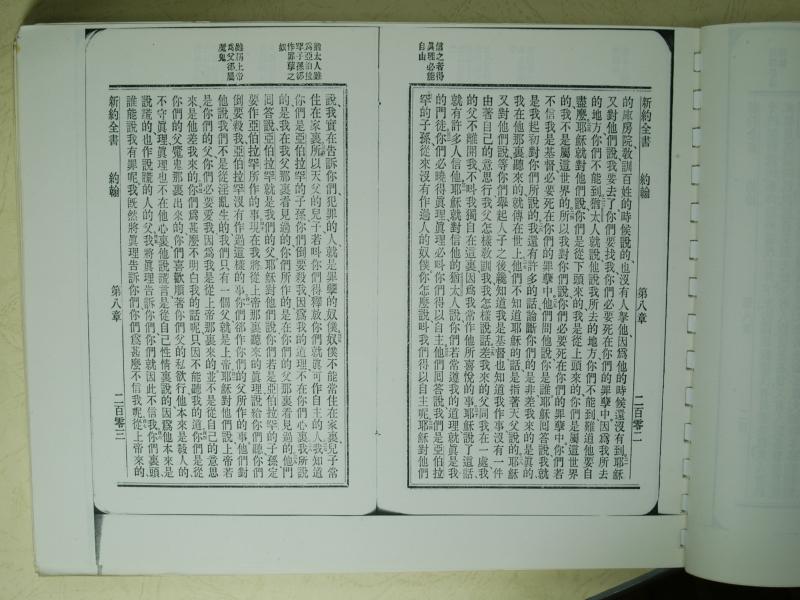 新約全書 約翰 第八章 二百零二
信之者得
眞理必能
自由
的庫房院敎訓百姓的時候說的、也沒有人拏他因爲他的時候還沒有到、耶穌
又對他們說我要去了你們要找我、你們必要死在你們的罪孽中、因爲我所去
的地方你們不能到、猶太人就說他說我所去的地方你們不能到、難道他要自
盡麼耶穌就對他們說你們是從下頭來的我是從上頭來的你們是屬這世界
的我不是屬這世界的、所以我對你們說你們必要死在你們的罪孽中你們若
不信我是基督必要死在你們的罪孽中他們問他說你是誰耶穌囘答說我就
是我起初對你們所說的、我還有許多的話論斷你們的是非差我來的是眞的
我在他那裏聽來的、就傳在世上他們不知道耶穌的話是指著天父說的耶穌
又對他們說等你們舉起人子之後纔知道我是基督也知道我作事沒有一件
由著自己的意思行我父怎樣敎訓我我怎樣說話差我來的父同我在一處我
的父不離開我不呌我獨自在這裏因爲我常作他所喜悅的事耶穌說了這話、
就有許多人信他耶穌就對信他的猶太人說你們若常遵我的道理就眞是我
的門徒你們必曉得眞理眞理必呌你們得以自主他們囘答說我們是亞伯拉
罕的子孫從來沒有作過人的奴僕你怎麼說呌我們得以自主呢耶穌對他們
新約全書 約翰 第八章 二百零三
猶太人雖
爲亞伯拉
罕子孫卻
作罪孽之
奴
雖稱上帝
爲父卻屬
魔鬼
說、我實在告訴你們犯罪的人就是罪孽的奴僕奴僕不能常住在家裏兒子常
住在家裏所以天父的兒子若呌你們得釋放你們就眞可作自主的人我知道
你們是亞伯拉罕的子孫你們倒要殺我因爲我的道理不在你們心裏我所說
的是我在我父那裏看見過的你們所作的是在你們的父那裏看見過的他們
囘答說亞伯拉罕就是我們的父耶穌對他們說你們若是亞伯拉罕的子孫定
要作亞伯拉罕所作的事現在我將從上帝那裏聽來的眞理說給你們聽你們
倒要殺我亞伯拉罕沒有作過這樣的事你們卻作你們的父所作的事他們對
他說我們不是從淫亂生的我們只有一個父就是上帝耶穌對他們說上帝若
是你們的父你們必要愛我因爲我是從上帝那裏來的並不是從自己的意思
來是他差我來的你們爲甚麼不明白我的話呢只因不能聽我的道你們是從
你們的父魔鬼那裏出來的你們喜歡順著你們父的私欲行他本來是殺人的
不守眞理眞理也不在他心裏他說謊言是從自己性情裏說的因爲他本來是
說謊的也作說謊的人的父我將眞理告訴你們你們就因此不信我你們裏頭
誰能說我有罪呢我旣然將眞理告訴你們你們爲甚麼不信我呢從上帝來的、